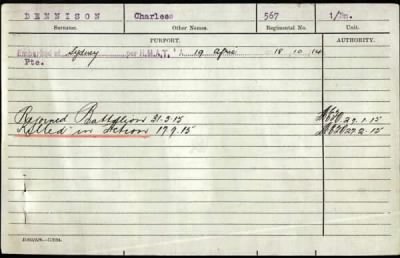 DENNISON Charles 567 1/Bn.
Surname. Other Names. Regimental No. Unit.
PURPORT. AUTHORITY.
Embarked at Sydney per H.M.A.T. 'A 19 Afric 18 10 14
Pte.
Rejoined Battalion 31.3.15 29.1.15
Killed in Action 17.9.15 27.2.15